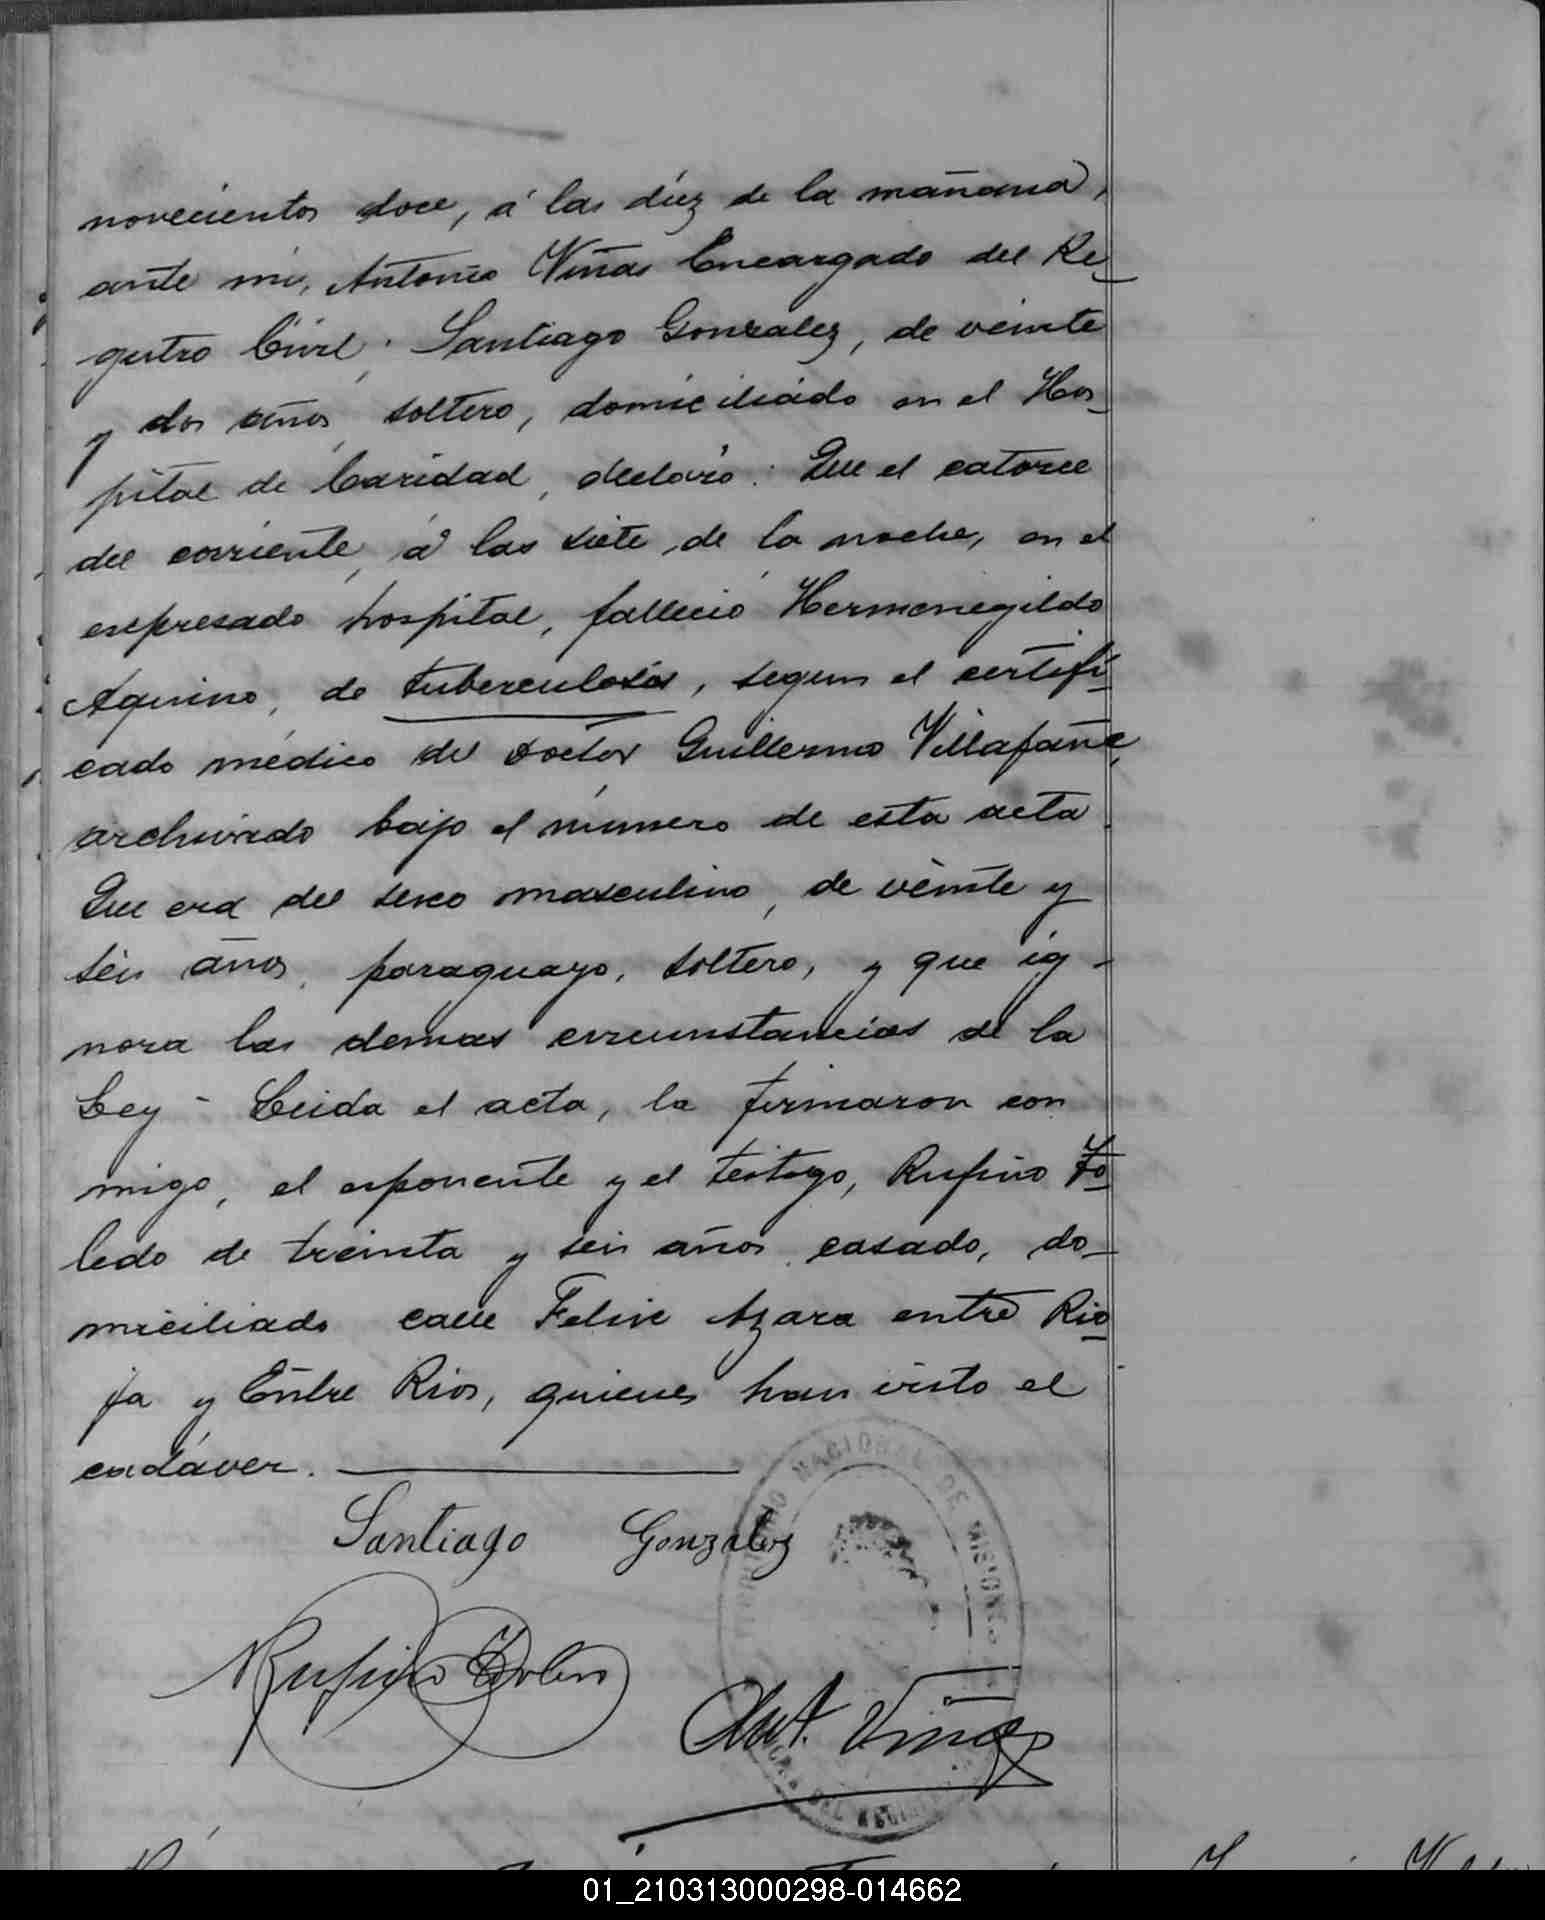 novecientos doce, á las diez de la mañana,
ante mi, Antonio Viñas Encargado del Re-
gistro Civil; Santiago Gonzalez, de veinte
y dos años, soltero, domiciliado en el Hos-
pital de Caridad, declaró: Que el catorce
del corriente, á las siete de la noche, en el
expresado hospital, falleció Hermenegildo
Aquino, de tuberculosis, segun el certifi-
cado médico del Doctor Guillermo Villafañe,
archivado bajo el número de esta acta.
Que era del sexo masculino, de veinte y
seis años, paraguayo, soltero, y que ig-
nora las demas circunstancias de la
Ley - Leida el acta, la firmaron con
migo, el esponente y el testigo, Rufino To-
ledo de treinta y seis años, casado, do-
miciliado calle Felix Azara entre Rio-
ja y Entre Rios, quienes han visto el
cadáver.
Santiago Gonzalez
Rufino Toledo
Ant. Viñas
TERRITORIO NACIONAL DE MISIONES
DEL REGISTRO
01_210313000298-014662